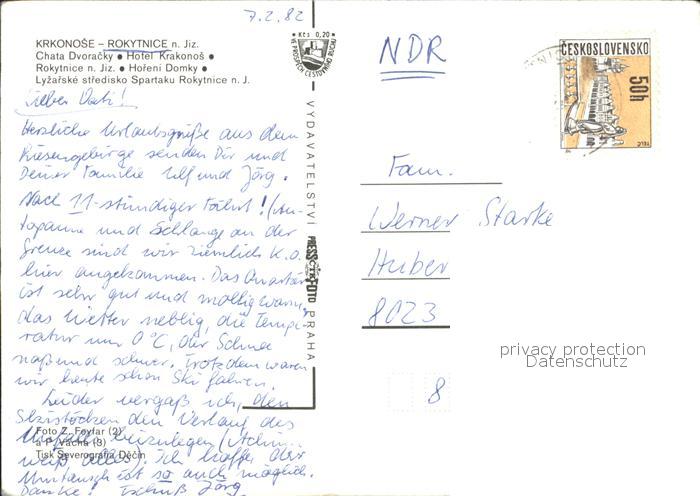 7.2.82
KRKONOŠE – ROKYTNICE n. Jiz.
Chata Dvoračky ● Hotel Krakonoš ●
Rokytnice n. Jiz. ● Hoření Domky ●
Lyžařské středisko Spartaku Rokytnice n. J.
Lieber Vati!
Herzliche Urlaubsgrüße aus dem
Riesengebirge senden Dir und
Deiner Familie Ulf und Jörg.
Nach 11-stündiger Fahrt! (Au-
topanne und Schlange an der
Grenze sind wir ziemlich k.o.
hier angekommen. Das Quartier
ist sehr gut und mollig warm,
das Wetter neblig, die Tempe-
ratur um 0°C, der Schnee
naß und schwer. Trotzdem waren
wir heute schon Ski fahren.
Leider vergaß ich, den
Skistöcken den Verlauf des
beizulegen (Achim
weiß alles). Ich hoffe der
Umtausch ist so auch möglich.
Danke! Tschüß Jörg
Foto Z. Feyfar (2)
a P. Vácha (3)
Tisk Severografia Děčín
Kčs 0,20
VE PROSPĚCH CESTOVNÍHO RUCHU
VYDAVATELSTVÍ PRESSFOTO PRAHA
ČTK
NDR
ČESKOSLOVENSKO
50h
TELČ
Fam.
Werner Starke
Huber
8023
8
privacy protection
Datenschutz